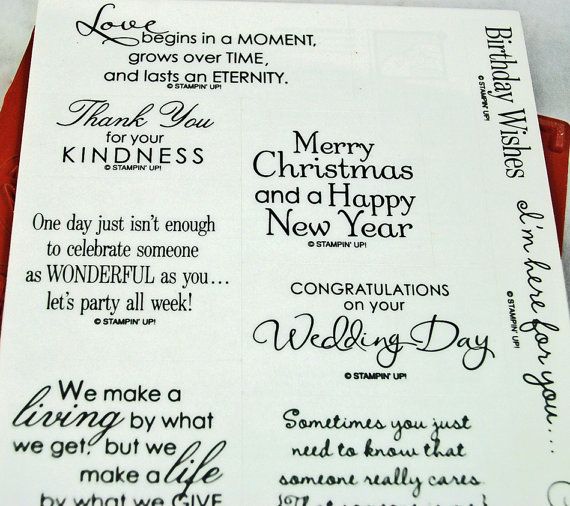 Love
begins in a MOMENT,
grows over TIME,
and lasts an ETERNITY.
© STAMPIN' UP!
Thank You
for your
KINDNESS
© STAMPIN' UP!
Merry
Christmas
and a Happy
New Year
© STAMPIN' UP!
One day just isn't enough
to celebrate someone
as WONDERFUL as you...
let's party all week!
© STAMPIN' UP!
CONGRATULATIONS
on your
Wedding Day
© STAMPIN' UP!
We make a
living by what
we get, but we
make a life
by what we GIVE
Sometimes you just
need to know that
someone really cares
Birthday Wishes
© STAMPIN' UP!
I'm here for you...
© STAMPIN' UP!